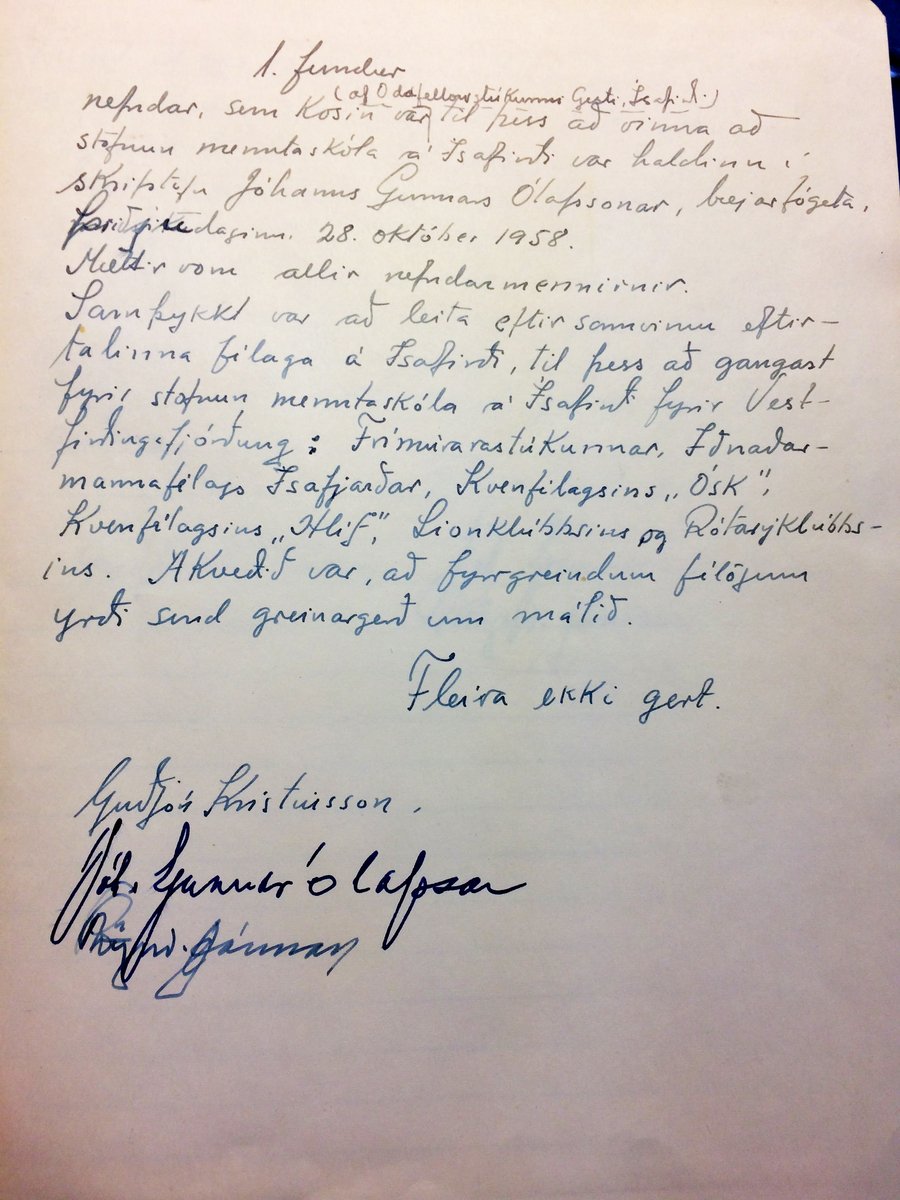 1. fundur
(af Oddfellowstúkunni Gesti, Ísafirði)
nefndar, sem kosin var til þess að vinna að
stofnun menntaskóla á Ísafirði var haldinn í
skrifstofu Jóhanns Gunnars Ólafssonar, bæjarfógeta,
þriðjudaginn 28. október 1958.
Mættir vom allir nefndarmennirnir.
Samþykkt var að leita eftir samvinnu eftir-
talinna félaga á Ísafirði, til þess að gangast
fyrir stofnun menntaskóla á Ísafirði fyrir Vest-
firðingafjórðung: Frímúrarastúkunnar, Iðnaðar-
mannafélags Ísafjarðar, Kvenfélagsins „Ósk",
Kvenfélagsins „Hlíf", Lionklúbbsins og Rótarýklúbbs-
ins. Ákveðið var, að fyrrgreindum félögum
yrði send greinargerð um málið.
Fleira ekki gert.
Guðjón Kristinsson.
Jóh. Gunnar Ólafsson